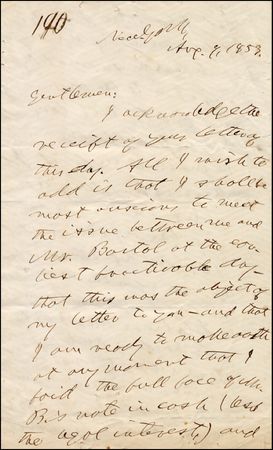 190
New York
Aug. 9, 1853.
Gentlemen:
I acknowledge the
receipt of your letter of
this day. All I wish to
add is that I shall be
most anxious to meet
the issue between me and
Mr. Bartol at the ear
liest practicable day—
that this was the object of
my letter to you—and that
I am ready to make oath
at any moment that I
paid the full face of Mr.
B's note in cash (less
the legal interest,) and